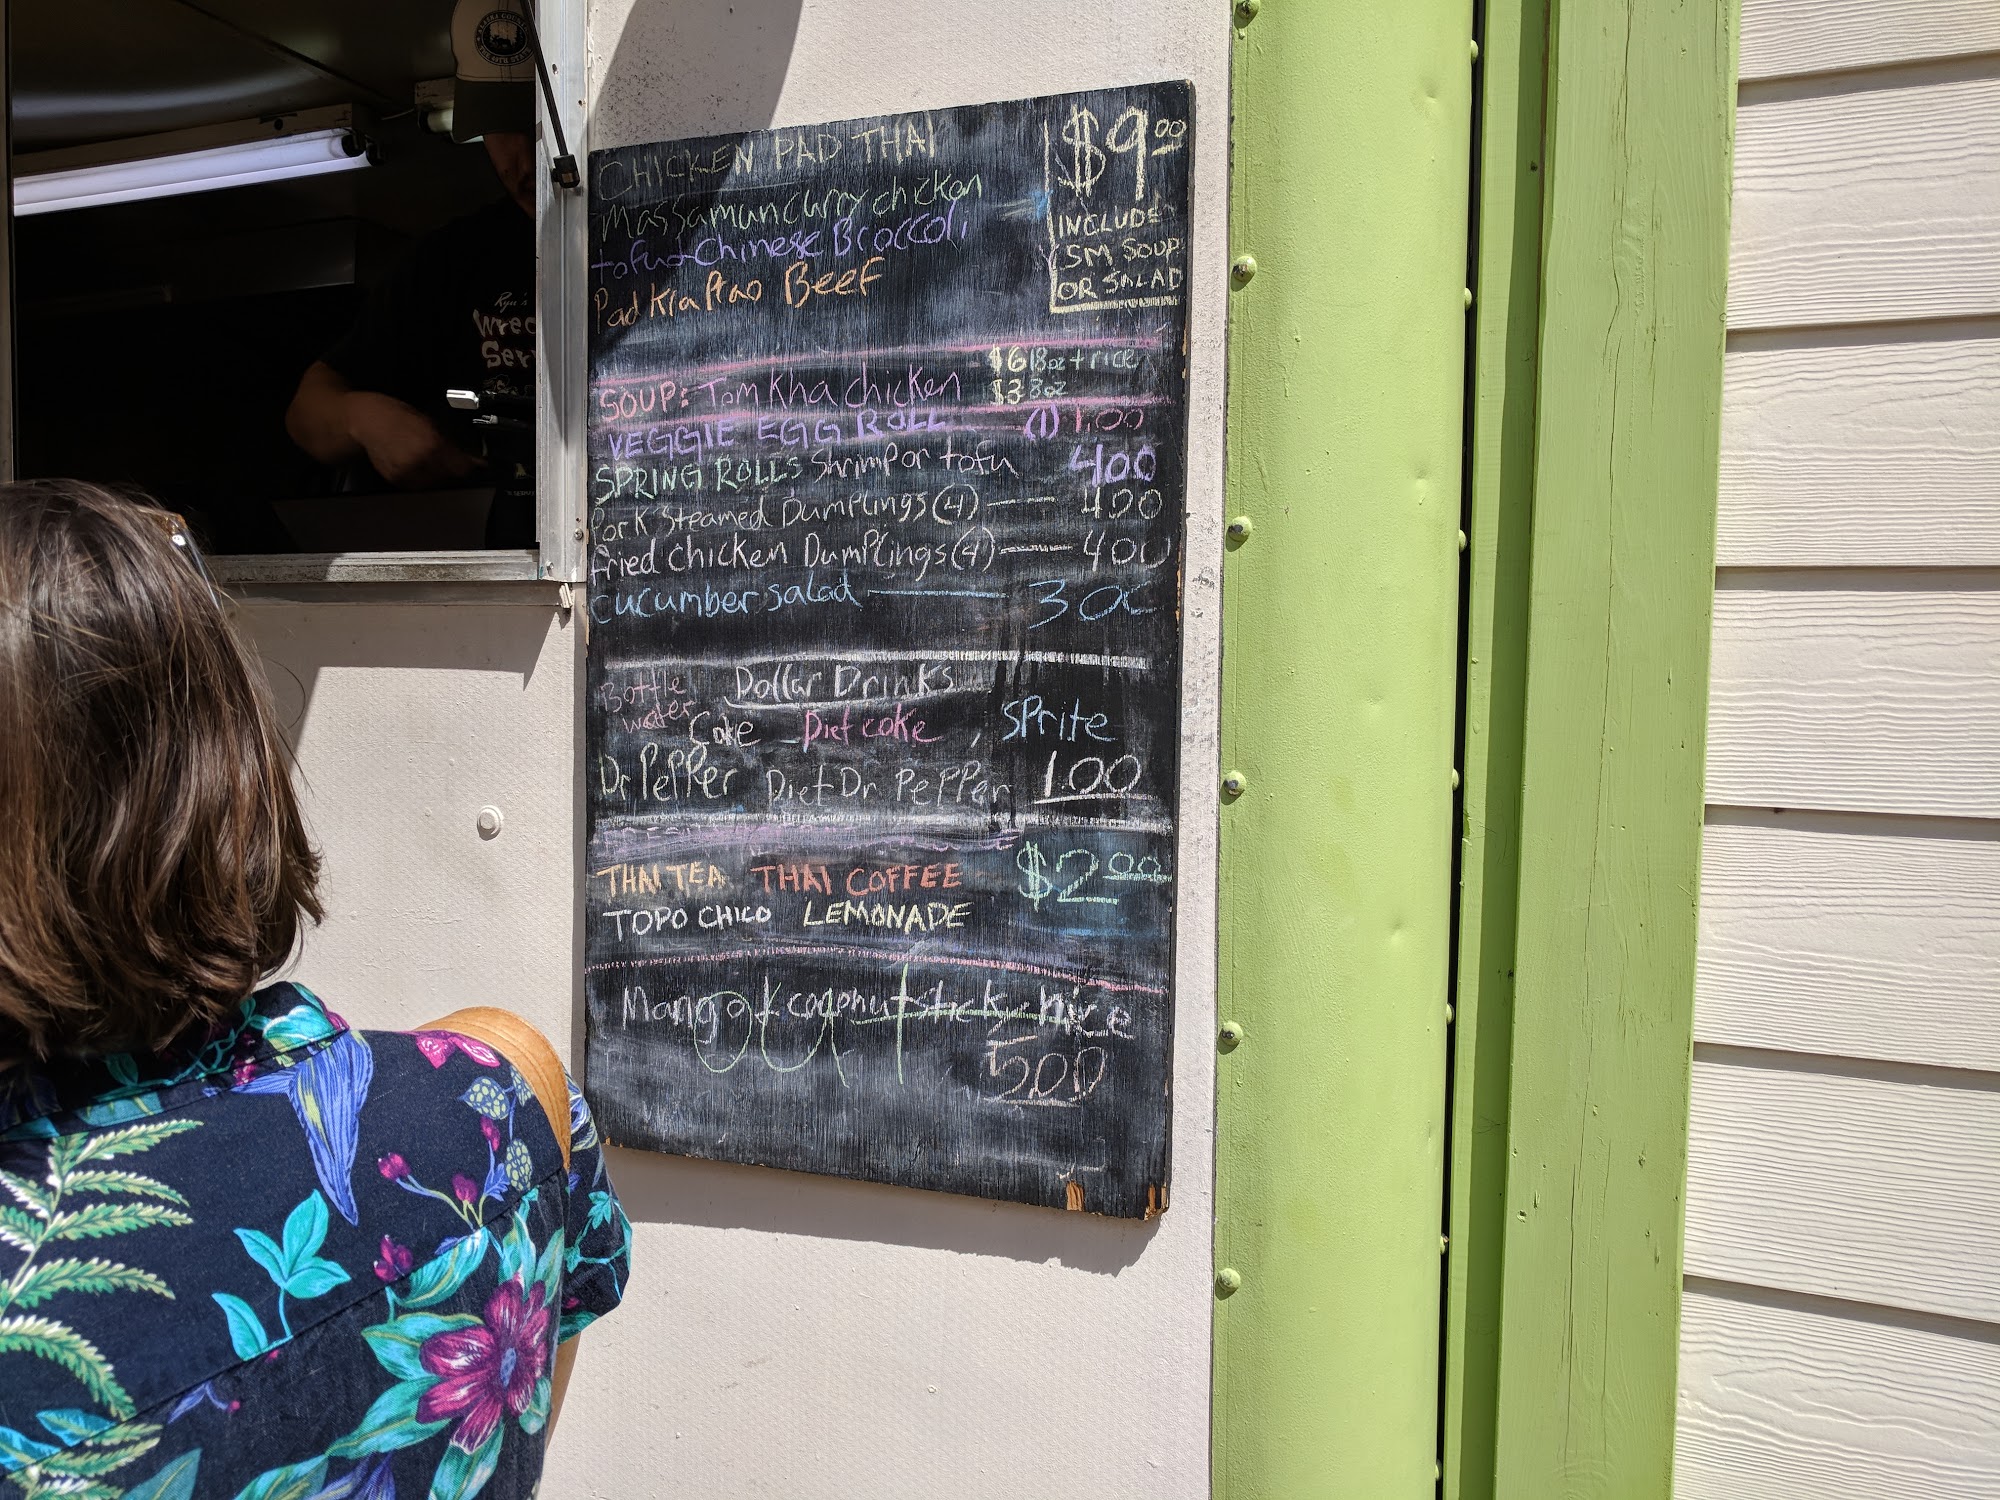 CHICKEN PAD THAI
Massaman curry chicken
tofu + Chinese Broccoli
Pad Kra Prao Beef
$9.00
INCLUDES
SM SOUP
OR SALAD
SOUP: Tom Kha chicken
$6 18oz + rice
$3 8oz
VEGGIE EGG ROLL (1) 1.00
SPRING ROLLS Shrimp or tofu 400
Pork Steamed Dumplings (4) — 400
fried chicken Dumplings (4) — 400
cucumber salad — 300
Dollar Drinks
Bottle
water
Coke Diet coke, Sprite
Dr PePPer Diet Dr PePPer 1.00
THAI TEA THAI COFFEE $2.00
TOPO CHICO LEMONADE
Mango + coconut sticky rice
out
500
Wrec
Ser